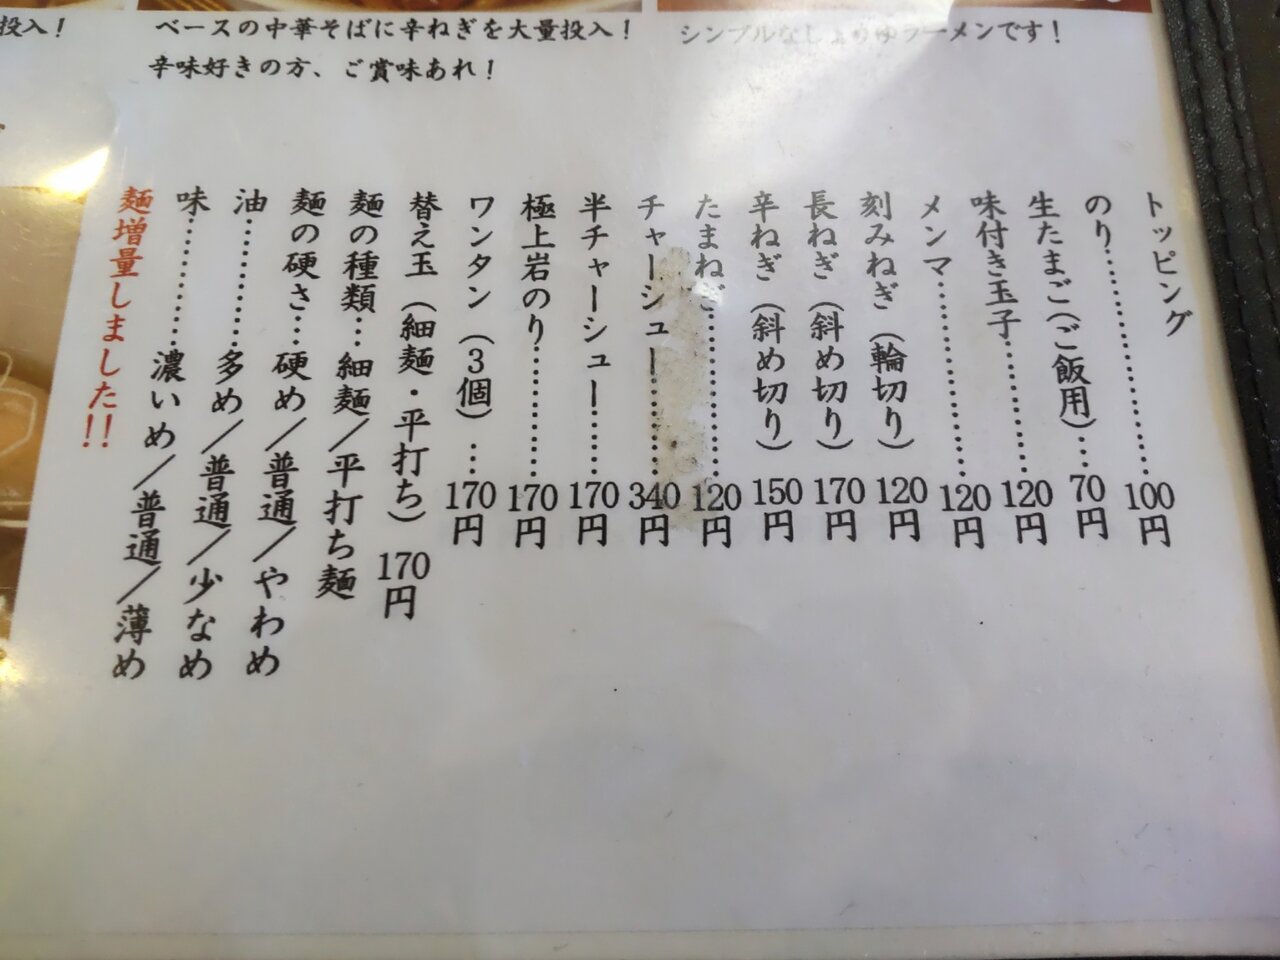 投入！
ベースの中華そばに辛ねぎを大量投入！
辛味好きの方、ご賞味あれ！
シンプルなしょうゆラーメンです！
トッピング
のり……………………100円
生たまご（ご飯用）…70円
味付き玉子……………120円
メンマ…………………120円
刻みねぎ（輪切り）120円
長ねぎ（斜め切り）170円
辛ねぎ（斜め切り）150円
たまねぎ………………120円
チャーシュー…………340円
半チャーシュー………170円
極上岩のり……………170円
ワンタン（3個）…170円
替え玉（細麺・平打ち）170円
麺の種類…細麺／平打ち麺
麺の硬さ…硬め／普通／やわめ
油…………多め／普通／少なめ
味…………濃いめ／普通／薄め
麺増量しました!!